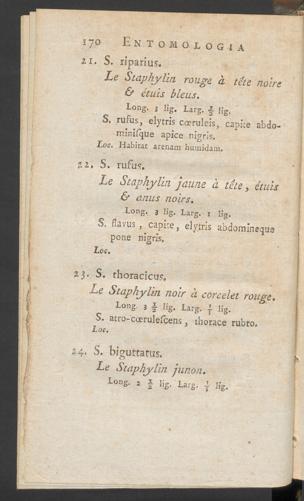 170 ENTOMOLOGIA
21. S. riparius.
Le Staphylin rouge à tête noire
& étuis bleus.
Long. 3 lig. Larg. ⅔ lig.
S. rufus, elytris cœruleis, capite abdo-
miniſque apice nigris.
Loc. Habitat arenam humidam.
22. S. rufus.
Le Staphylin jaune à tête, étuis
& anus noirs.
Long. 3 lig. Larg. 1 lig.
S. flavus, capite, elytris abdomineque
pone nigris.
Loc.
23. S. thoracicus.
Le Staphylin noir à corcelet rouge.
Long. lig. Larg. lig.
S. atro-cœruleſcens, thorace rubro.
Loc.
24. S. biguttatus.
Le Staphylin junon.
Long. 2 lig. Larg. lig.